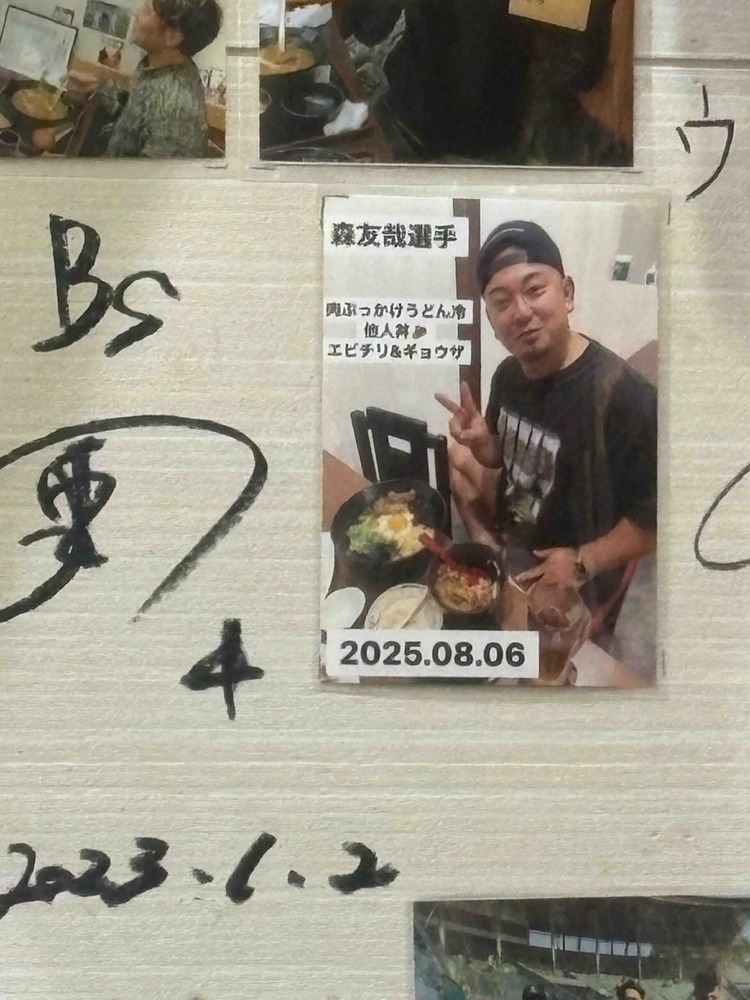 ウ
Bs
森友哉選手
肉ぶっかけうどん冷
他人丼
エビチリ&ギョウザ
4
2025.08.06
2023.1.2